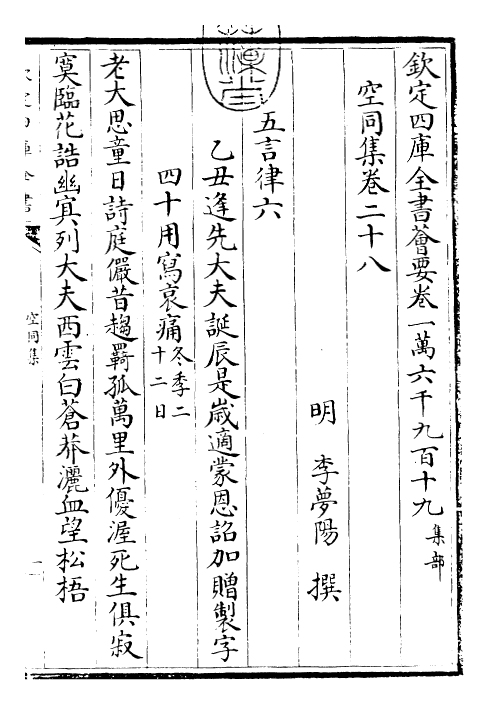 欽定四庫全書薈要卷一萬六千九百十九 集部
空同集卷二十八
明 李夢陽 撰
五言律六
乙丑逢先大夫誕辰是歲適蒙恩詔加贈製字
四十用寫哀痛 冬季二十二日
老大思童日詩庭儼昔趨羇孤萬里外優渥死生俱寂
寞臨花誥幽冥列大夫西雲白蒼莽灑血望松梧
欽定四庫全書
空同集
一